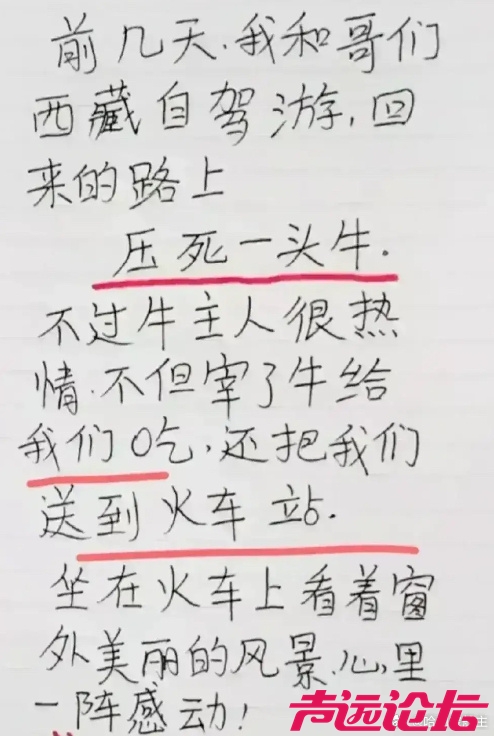 前几天.我和哥们
西藏自驾游,回
来的路上
压死一头牛.
不过牛主人很热
情.不但宰了牛给
我们吃.还把我们
送到火车站.
坐在火车上看着窗
外美丽的风景.心里
一阵感动!
声远论坛